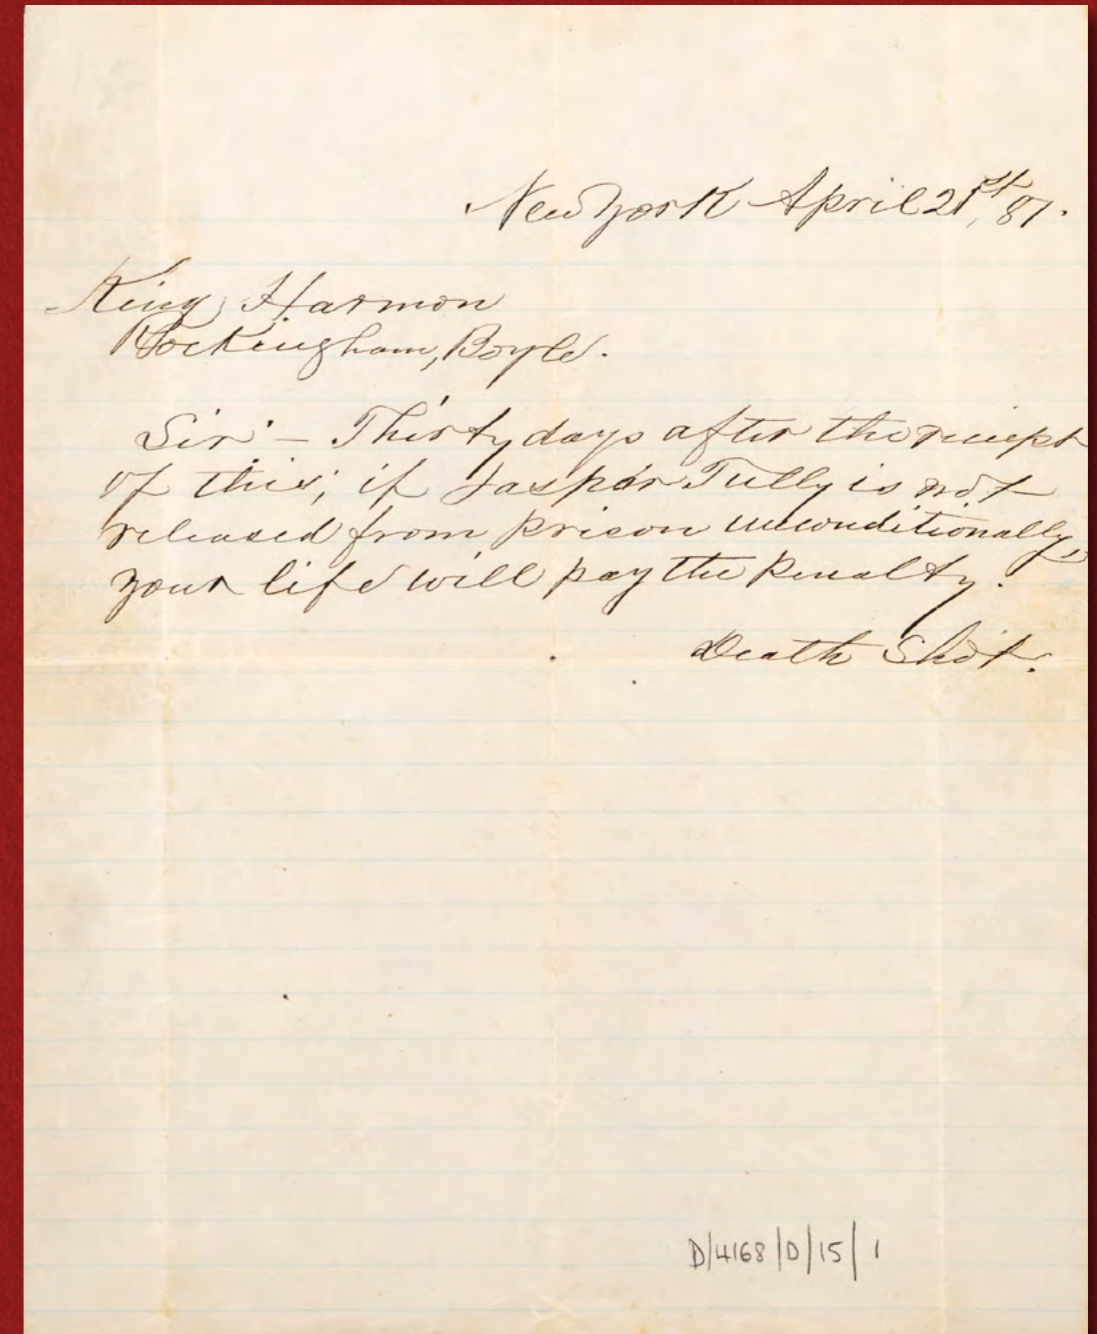 New York April 21st, 87.
King, Harmon
Rockingham, Boyle.
Sir:- Thirty days after the reciept
of this; if Jasper Tully is not
released from prison unconditionally,
your life will pay the penalty.
Death Shot.
D/4168/D/15/1